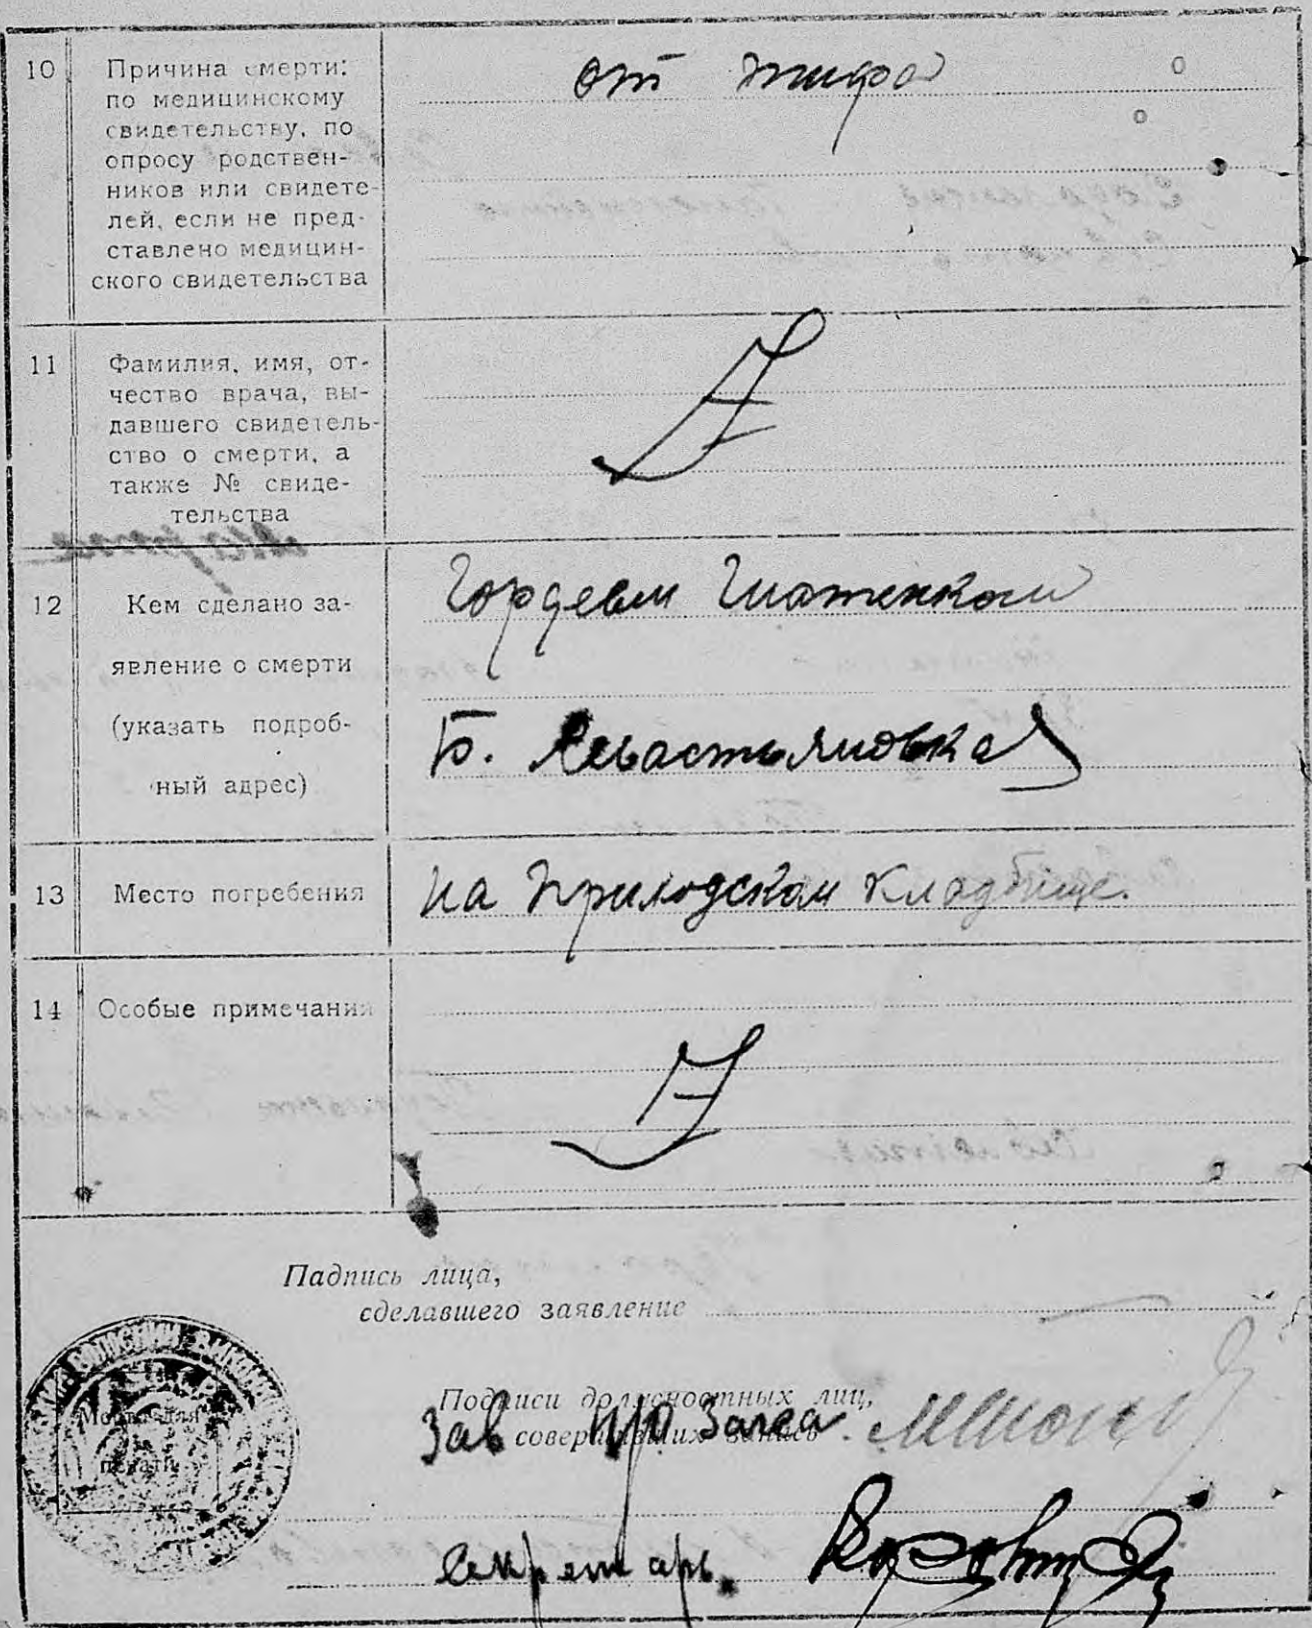 10 Причина смерти: от тифа
по медицинскому
свидетельству, по
опросу родствен-
ников или свидете-
лей, если не пред-
ставлено медицин-
ского свидетельства
11 Фамилия, имя, от-
чество врача, вы-
давшего свидетель-
ство о смерти, а
также № свиде-
тельства
12 Кем сделано за- Гордеем
явление о смерти
(указать подроб- Б. Севастьяновка
ный адрес)
13 Место погребения на Приходском кладбище.
14 Особые примечания
Падпись лица,
сделавшего заявление
Подписи должностных лиц,
совершивших запись
Зав п/о Загса
Место для
печати
Секретарь